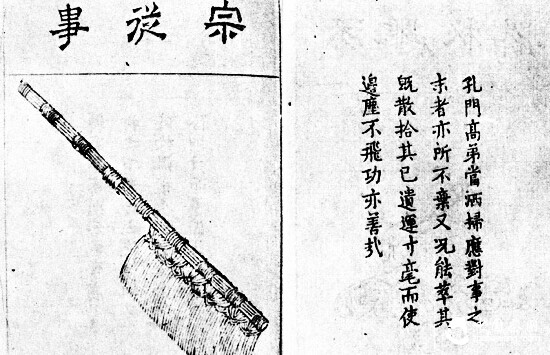 宗從事
孔門髙弟當洒掃應對事之
末者亦所不棄又况能萃其
既散拾其已遺運寸毫而使
邊塵不飛功亦善哉